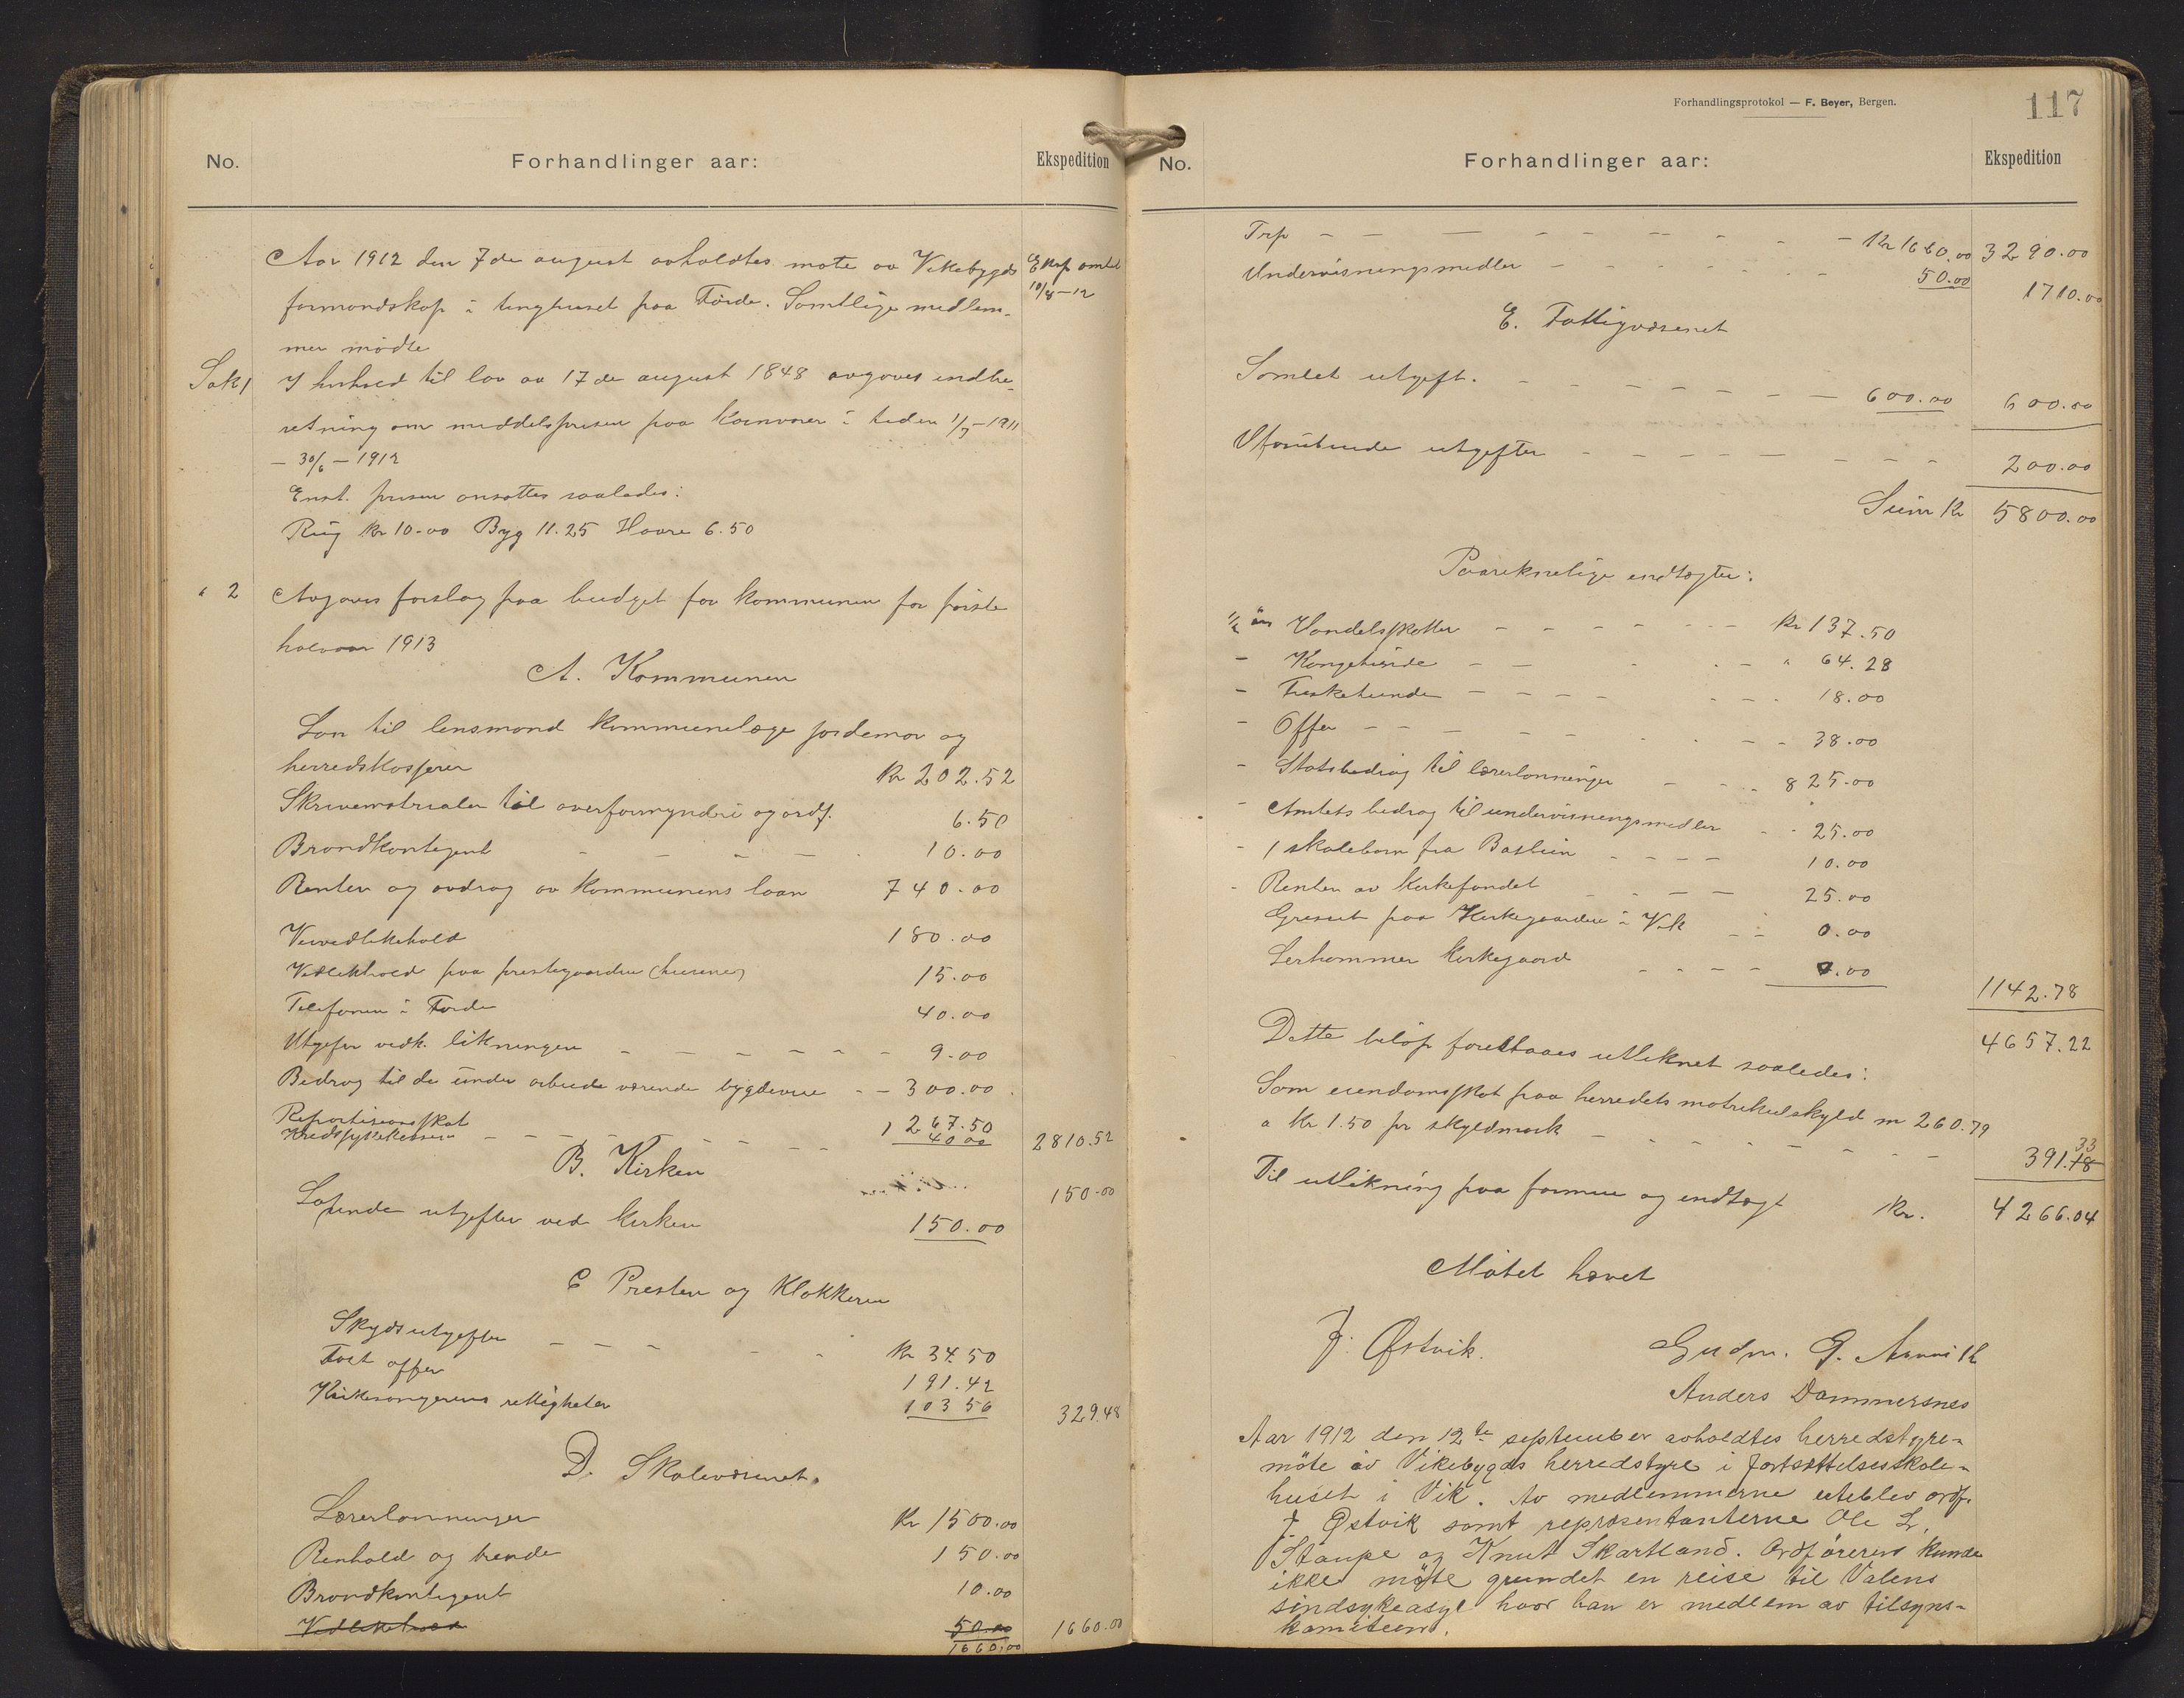 No.
Forhandlinger aar:
Ekspedition
Aar 1912 den 7de august avholdtes møte av Vikebygds
formandskap i tinghuset paa Førde. Samtlige medlem-
mer mødte
Eksp. amtet
10/8-12
Sak 1 I henhold til lov av 17de august 1848 avgaves indbe-
retning om middelsprisen paa kornvarer i tiden 1/7-1911
- 30/6-1912
Enst. prisen ansattes saaledes:
Rug kr 10.00 Byg 11.25 Havre 6.50
" 2 Avgaves forslag paa budget for kommunen for første
halvaar 1913
A. Kommunen
Løn til lensmand kommunelæge jordemor og
herredskasserer Kr 202.52
Skrivematrialer til overformynderi og ordf. 6.50
Brandkontigent 10.00
Renter og avdrag av kommunens laan 740.00
Veivedlikehold 180.00
Vedlikehold paa prestegaarden (husene) 15.00
Telefonen i Førde 40.00
Utgifter vedk. likningen 9.00
Bedrag til de under arbeide værende bygdeveie 300.00
Repartisionsskat 1267.50
Kredssykekassen 40.00 2810.52
B. Kirken
Løpende utgifter ved kirken 150.00 150.00
C Presten og Klokkeren
Skydsutgifter Kr 34.50
Fast offer 191.42
Kirkesangerens rettigheter 103 56 329.48
D. Skolevæsenet.
Lærerlønninger Kr 1500.00
Renhold og brende 150.00
Brandkontigent 10.00
Vedlikehold 50.00
1660.00 1660.00
Forhandlingsprotokol — F. Beyer, Bergen.
117
No.
Forhandlinger aar:
Ekspedition
Trp Kr 1660.00 3290.00
Undervisningsmedler 50.00 1710.00
E. Fattigvæsenet
Samlet utgift. 600.00 600.00
Uforutseede utgifter 200.00
Sum Kr 5800.00
Paareknelige indtægter:
1/2 års Handelsskatter Kr 137.50
- Kongetiende " 64.28
- Fisketiende 18.00
- Offer 38.00
- Statsbedrag til lærerlønninger 825.00
- Amtets bedrag til undervisningsmedler 25.00
- 1 skolebarn fra 10.00
- Renter av kirkefondet 25.00
Gresset paa Kirkegaarden i Vik 0.00
Kirkegaard 0.00
1142.78
4657.22
Dette beløp foreslaaes utliknet saaledes:
Som eiendomsskat paa herredets matrikulskyld m 260.79
a Kr 1.50 pr skyldmark 391.18 33
Til utlikning paa formue og indtægt Kr. 4266.04
Møtet hævet
J. Østvik. Gudm. G.
Anders Dommersnes
Aar 1912 den 12te september avholdtes herredstyre-
møte av Vikebygds herredstyre i fortsættelsesskole-
huset i Vik. Av medlemmerne uteblev ordf.
J. Østvik samt repræsentanterne Ole L.
Staupe og Knut Skartland. Ordføreren kunde
ikke møte grundet en reise til Valens
sindsykeasyl hvor han er medlem av tilsyns-
komiteen.